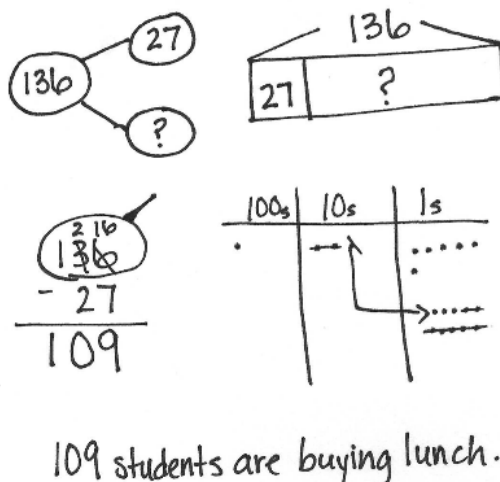 136
27
?
136
27 ?
2 16
136
- 27
109
100s 10s 1s
109 students are buying lunch.